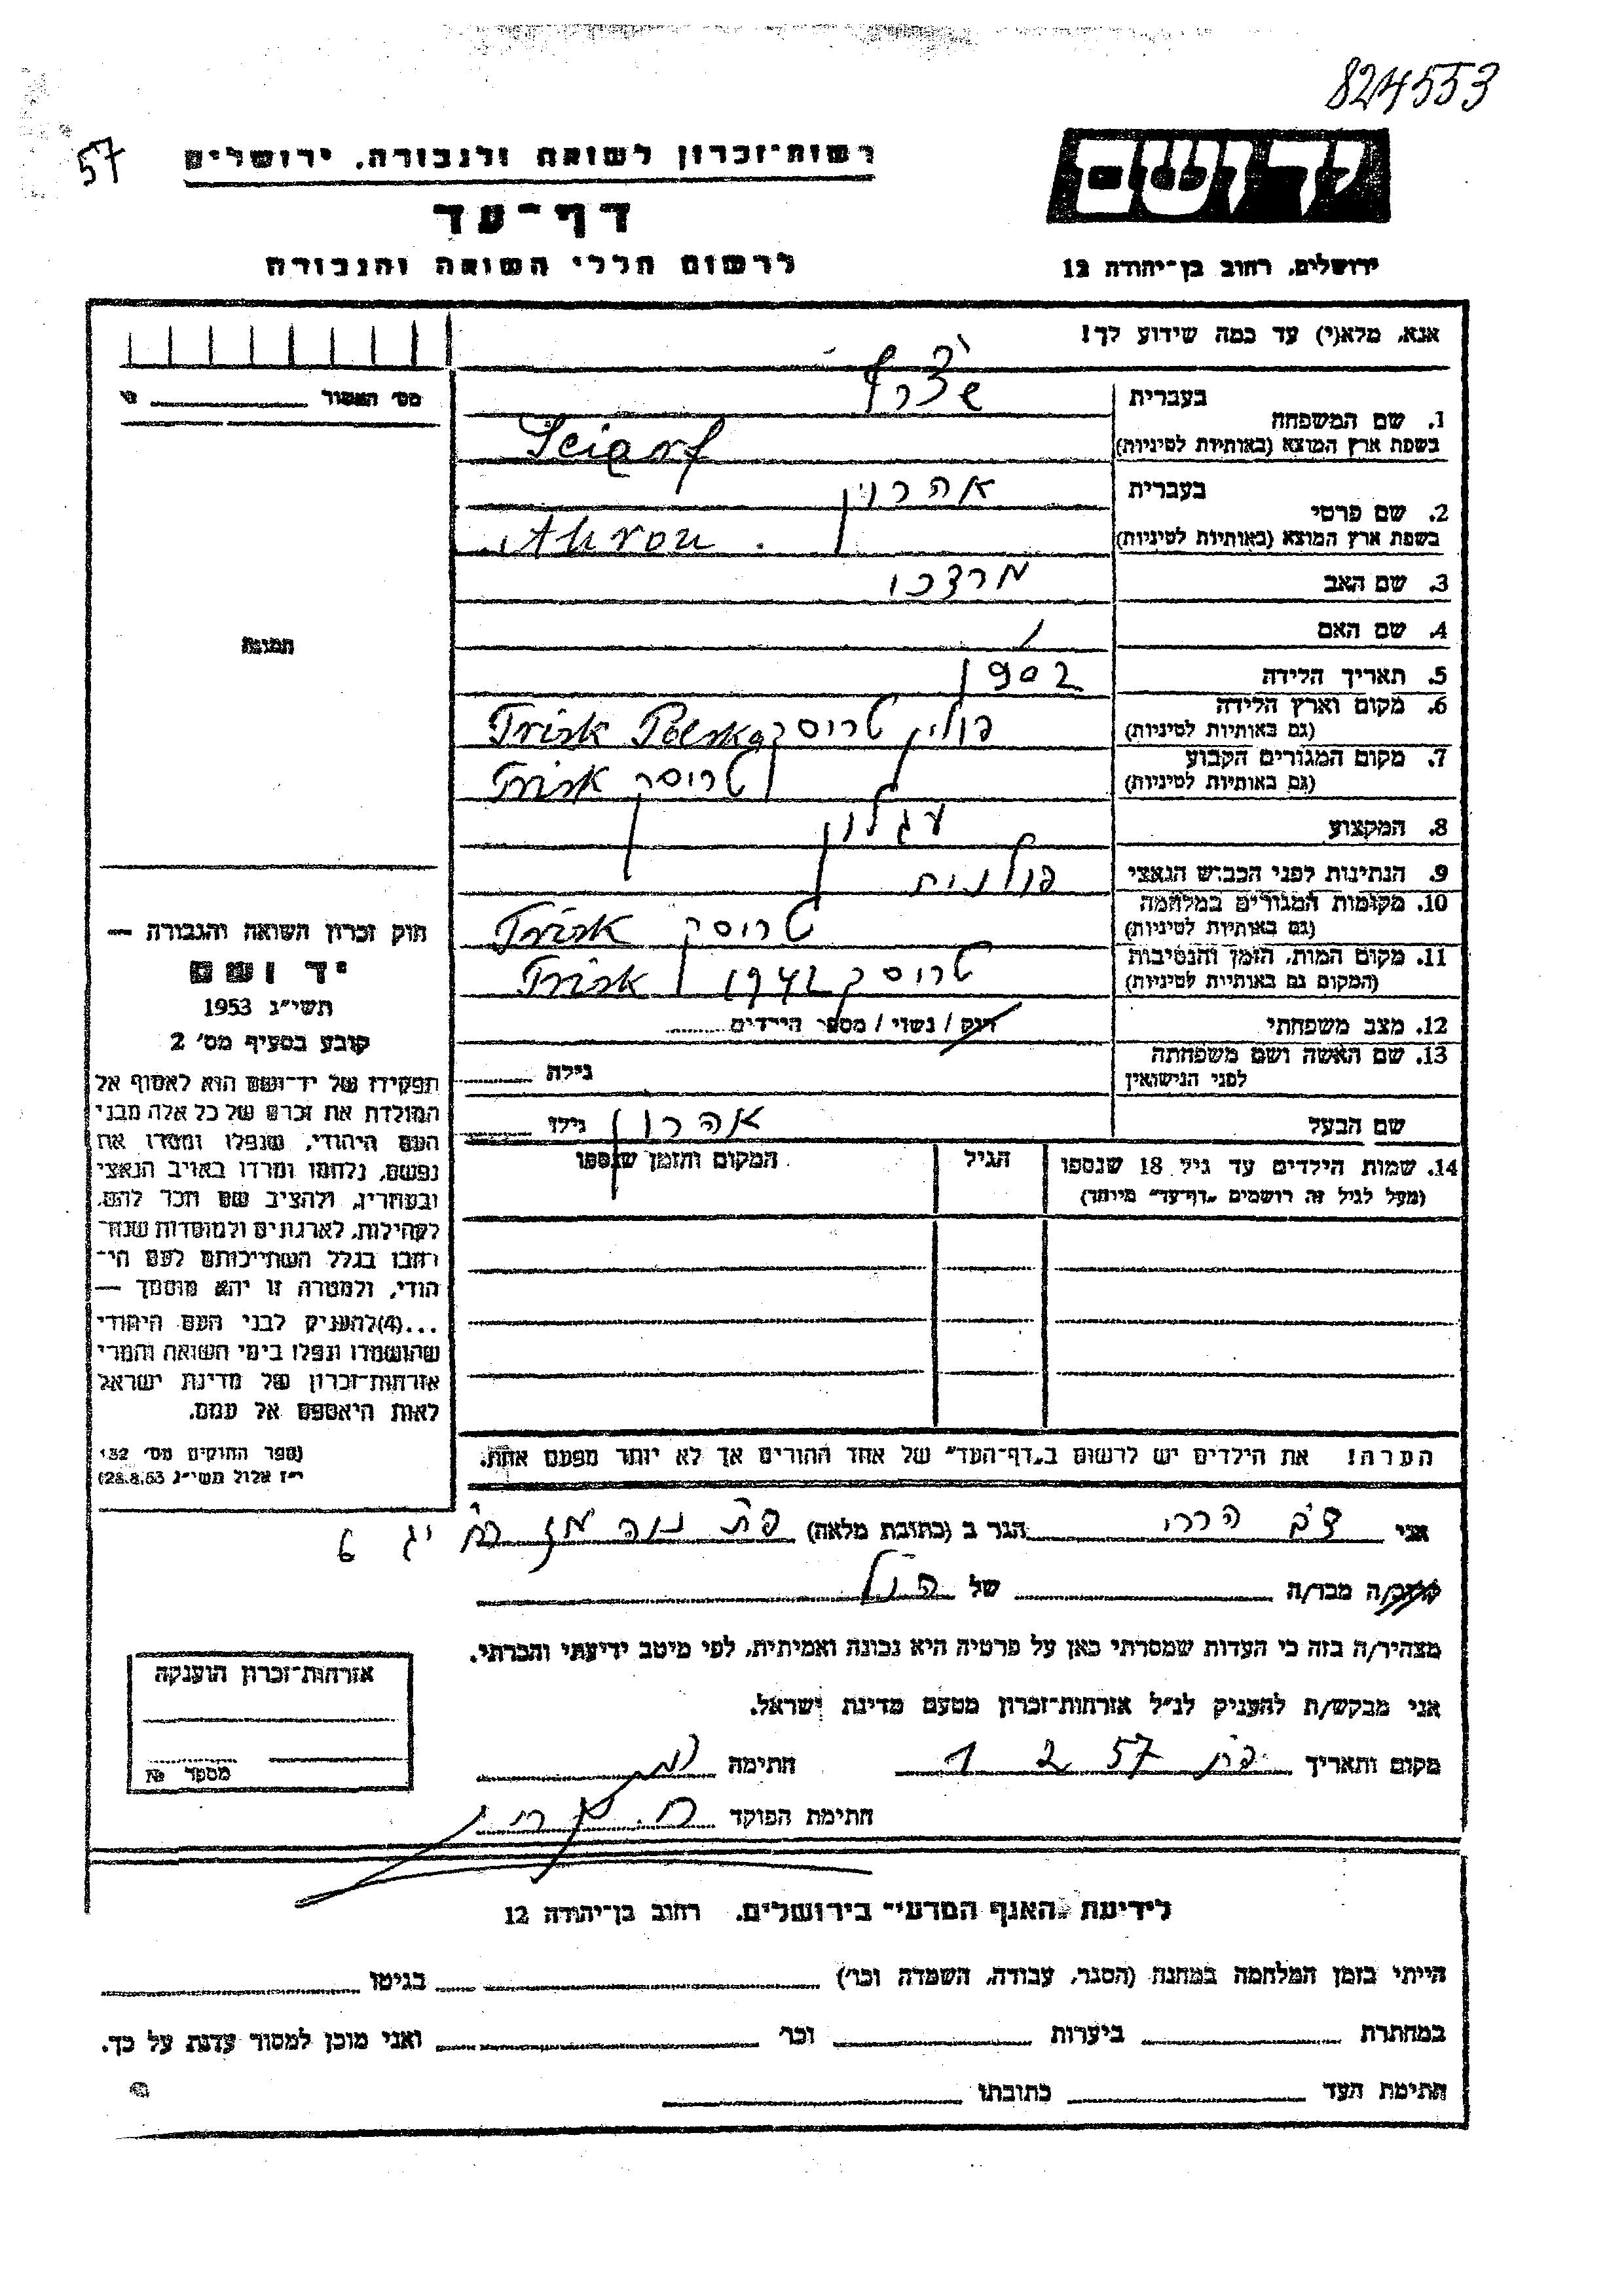 824553
57
רשות־זכרון לשואה ולגבורה, ירושלים
יד ושם
דף־עד
לרשום חללי השואה והגבורה
ירושלים, רחוב בן־יהודה 12
אנא, מלא(י) עד כמה שידוע לך!
מס׳ האשור
בעברית
1. שם המשפחה
בשפת ארץ המוצא (באותיות לטיניות) Sciarf
בעברית אהרון
2. שם פרטי
בשפת ארץ המוצא (באותיות לטיניות) Ahron
3. שם האב מרדכי
4. שם האם /
תמונה
5. תאריך הלידה 1902
6. מקום וארץ הלידה פולין טריסק Trisk Polska
(גם באותיות לטיניות)
7. מקום המגורים הקבוע טריסק Trisk
(גם באותיות לטיניות)
8. המקצוע עגלון
9. הנתינות לפני הכבוש הנאצי פולנית
10. מקומות המגורים במלחמה טריסק Trisk
(גם באותיות לטיניות)
11. מקום המות, הזמן והנסיבות טריסק 1942 Trisk
(המקום גם באותיות לטיניות)
12. מצב משפחתי רווק / נשוי / מספר הילדים
13. שם האשה ושם משפחתה גילה
לפני הנישואין
שם הבעל אהרון גילו
14. שמות הילדים עד גיל 18 שנספו הגיל המקום והזמן שנספו
(מעל לגיל זה רושמים „דף־עד” מיוחד)
הערה! את הילדים יש לרשום ב„דף־העד” של אחד ההורים אך לא יותר מפעם אחת.
חוק זכרון השואה והגבורה —
יד ושם
תשי״ג 1953
קובע בסעיף מס׳ 2
תפקידו של יד־ושם הוא לאסוף אל
המולדת את זכרם של כל אלה מבני
העם היהודי, שנפלו ומסרו את
נפשם, נלחמו ומרדו באויב הנאצי
ובעוזריו, ולהציב שם וזכר להם,
לקהילות, לארגונים ולמוסדות שנח־
רבו בגלל השתייכותם לעם הי־
הודי, ולמטרה זו יהא מוסמך —
...(4) להעניק לבני העם היהודי
שהושמדו ונפלו בימי השואה והמרי
אזרחות־זכרון של מדינת ישראל
לאות היאספם אל עמם.
(ספר החוקים מס׳ 132
י״ז אלול תשי״ג 28.8.53)
אני הררי הגר ב (כתובת מלאה)
קרוב/ה מכר/ה של הנ״ל
מצהיר/ה בזה כי העדות שמסרתי כאן על פרטיה היא נכונה ואמיתית, לפי מיטב ידיעתי והכרתי.
אני מבקש/ת להעניק לנ״ל אזרחות־זכרון מטעם מדינת ישראל.
מקום ותאריך 1 2 57 חתימה
חתימת הפוקד
אזרחות־זכרון הוענקה
מספר №
לידיעת האגף המדעי בירושלים. רחוב בן־יהודה 12
הייתי בזמן המלחמה במחנה (הסגר, עבודה, השמדה וכו׳) בגיטו
במחתרת ביערות וכו׳ ואני מוכן למסור עדות על כך.
חתימת העד כתובתו